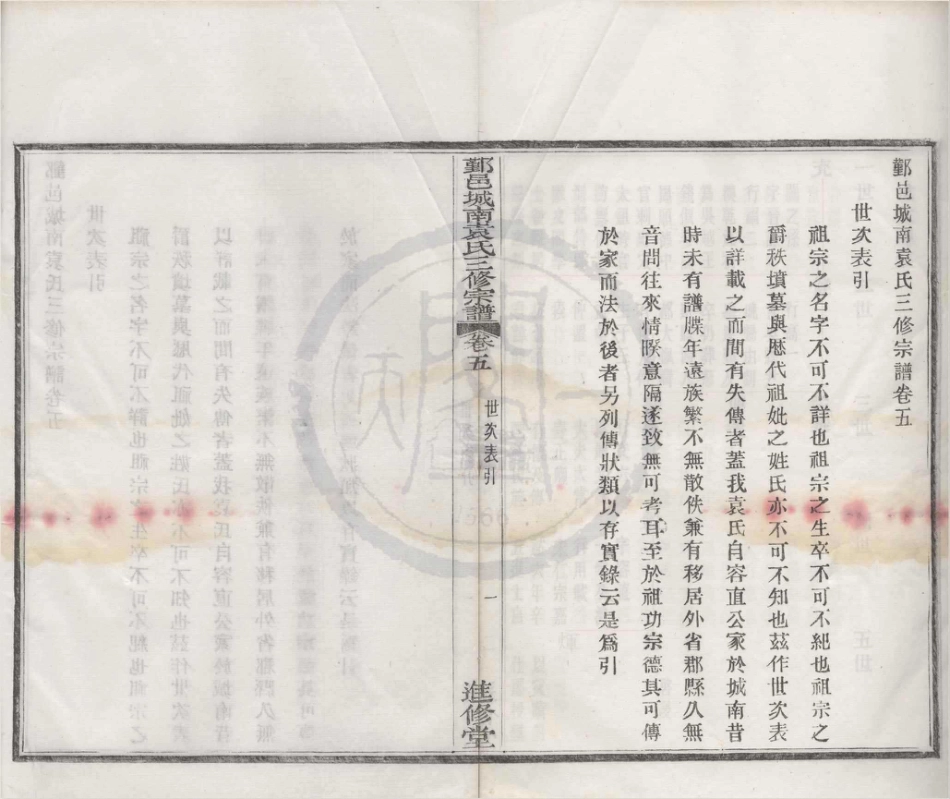 鄞邑城南袁氏三修宗譜卷五
世次表引
祖宗之名字不可不詳也祖宗之生卒不可不紀也祖宗之
爵秩墳墓與歷代祖妣之姓氏亦不可不知也茲作世次表
以詳載之而間有失傳者蓋我袁氏自容直公家於城南昔
時未有譜牒年遠族繁不無散佚兼有移居外省郡縣久無
音問往來情睽意隔遂致無可考耳至於祖功宗德其可傳
於家而法於後者另列傳狀類以存實錄云是為引
鄞邑城南袁氏三修宗譜
卷五
世次表引
一
進修堂